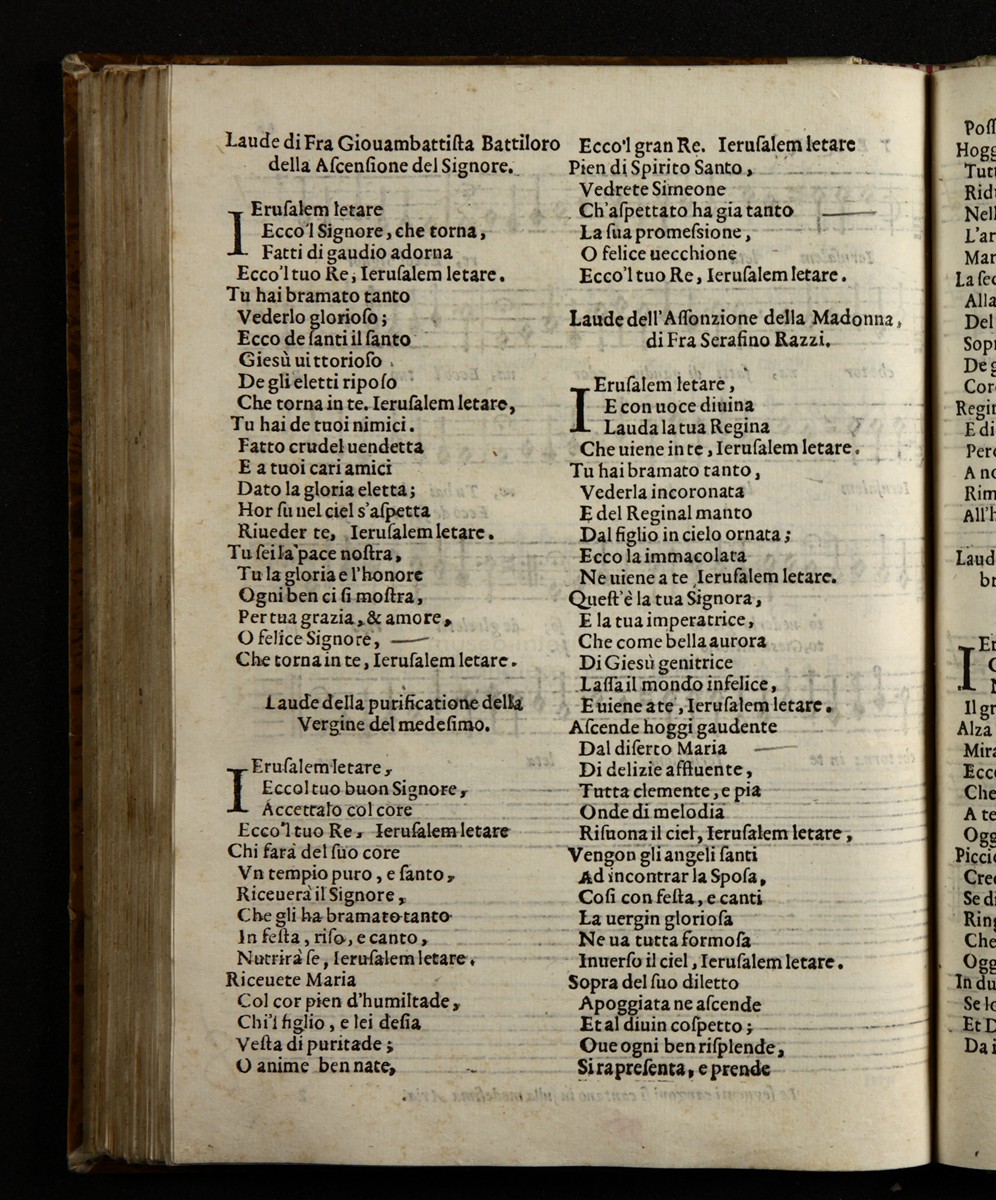 Laude di Fra Giouambattiſta Battiloro
della Aſcenſione del Signore.
IEruſalem letare
Ecco'l Signore, che torna,
Fatti di gaudio adorna
Ecco'l tuo Re, Ieruſalem letare.
Tu hai bramato tanto
Vederlo glorioſo;
Ecco de ſanti il ſanto
Gieſù uittorioſo
De gli eletti ripoſo
Che torna in te. Ieruſalem letare,
Tu hai de tuoi nimici.
Fatto crudel uendetta
E a tuoi cari amici
Dato la gloria eletta;
Hor ſu nel ciel s'aſpetta
Riueder te, Ieruſalem letare.
Tu ſei la pace noſtra,
Tu la gloria e l'honore
Ogni ben ci ſi moſtra,
Per tua grazia, & amore,
O felice Signore,
Che torna in te, Ieruſalem letare.
Laude della purificatione della
Vergine del medeſimo.
IEruſalem letare,
Ecco l tuo buon Signore,
Accettalo col core
Ecco'l tuo Re, Ieruſalem letare
Chi farà del ſuo core
Vn tempio puro, e ſanto,
Riceuerà il Signore,
Che gli ha bramato tanto
In feſta, riſo, e canto,
Nutrirà ſe, Ieruſalem letare.
Riceuete Maria
Col cor pien d'humiltade,
Chi'l figlio, e lei deſia
Veſta di puritade;
O anime ben nate,
Ecco'l gran Re. Ieruſalem letare
Pien di Spirito Santo,
Vedrete Simeone
Ch'aſpettato ha gia tanto
La ſua promeſsione,
O felice uecchione
Ecco'l tuo Re, Ieruſalem letare.
Laude dell'Aſſonzione della Madonna,
di Fra Serafino Razzi.
IEruſalem letare,
E con uoce diuina
Lauda la tua Regina
Che uiene in te, Ieruſalem letare.
Tu hai bramato tanto,
Vederla incoronata
E del Reginal manto
Dal figlio in cielo ornata;
Ecco la immacolata
Ne uiene a te Ieruſalem letare.
Queſt'è la tua Signora,
E la tua imperatrice,
Che come bella aurora
Di Gieſù genitrice
Laſſa il mondo infelice,
E uiene a te, Ieruſalem letare.
Aſcende hoggi gaudente
Dal diſerto Maria
Di delizie affluente,
Tutta clemente, e pia
Onde di melodia
Riſuona il ciel, Ieruſalem letare,
Vengon gli angeli ſanti
Ad incontrar la Spoſa,
Coſi con feſta, e canti
La uergin glorioſa
Ne ua tutta formoſa
Inuerſo il ciel, Ieruſalem letare.
Sopra del ſuo diletto
Apoggiata ne aſcende
Et al diuin coſpetto;
Oue ogni ben riſplende,
Si rapreſenta, e prende